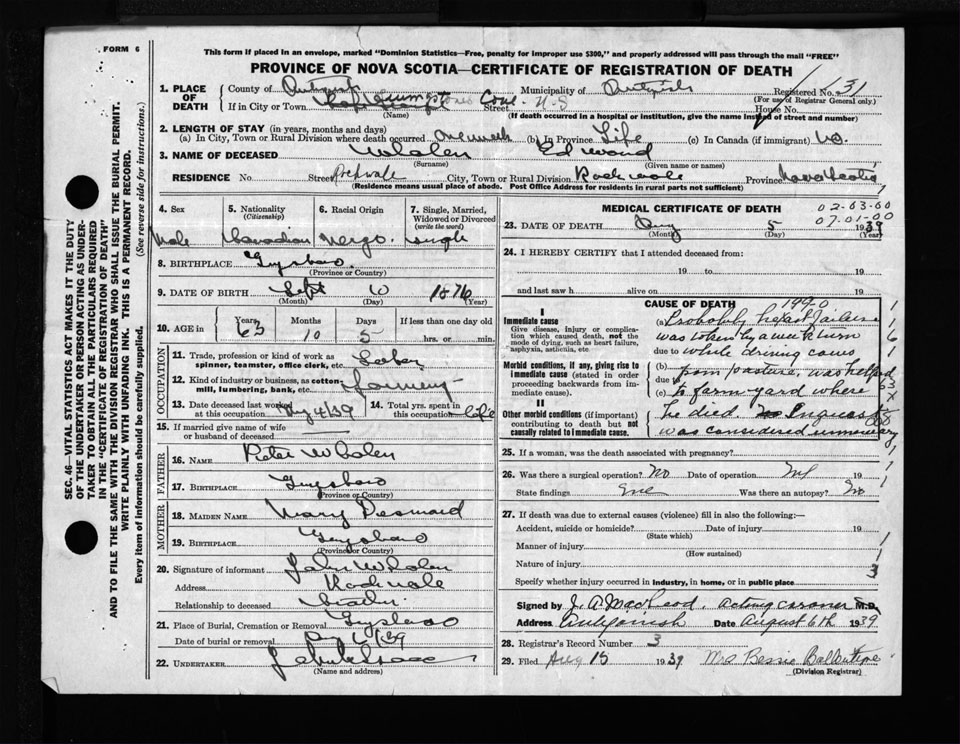 FORM 6
This form if placed in an envelope, marked "Dominion Statistics—Free, penalty for improper use $300," and properly addressed will pass through the mail "FREE"
PROVINCE OF NOVA SCOTIA—CERTIFICATE OF REGISTRATION OF DEATH
SEC. 46—VITAL STATISTICS ACT MAKES IT THE DUTY
OF THE UNDERTAKER OR PERSON ACTING AS UNDER-
TAKER TO OBTAIN ALL THE PARTICULARS REQUIRED
IN THE "CERTIFICATE OF REGISTRATION OF DEATH"
AND TO FILE THE SAME WITH THE DIVISION REGISTRAR WHO SHALL ISSUE THE BURIAL PERMIT.
WRITE PLAINLY WITH UNFADING INK. THIS IS A PERMANENT RECORD.
Every item of information should be carefully supplied. (See reverse side for instructions.)
1. PLACE OF DEATH County of Municipality of Registered No. 31
(For use of Registrar General only.)
If in City or Town Cove N-S Street House No.
(Name) (If death occurred in a hospital or institution, give the name instead of street and number)
2. LENGTH OF STAY (in years, months and days)
(a) In City, Town or Rural Division where death occurred one week (b) In Province Life (c) In Canada (if immigrant)
3. NAME OF DECEASED Whalen Edward
(Surname) (Given name or names)
RESIDENCE No Street City, Town or Rural Division Province Nova Scotia
(Residence means usual place of abode. Post Office Address for residents in rural parts not sufficient)
4. Sex 5. Nationality (Citizenship) 6. Racial Origin 7. Single, Married, Widowed or Divorced (write the word)
Male Canadian Negro. single
8. BIRTHPLACE Guysboro
(Province or Country)
9. DATE OF BIRTH Sept 1876
(Month) (Day) (Year)
10. AGE in Years 63 Months 10 Days 5 If less than one day old hrs. or min.
OCCUPATION
11. Trade, profession or kind of work as spinner, teamster, office clerk, etc. Labor
12. Kind of industry or business, as cotton mill, lumbering, bank, etc. farming
13. Date deceased last worked at this occupation Aug 4/39 14. Total yrs. spent in this occupation life
15. If married give name of wife or husband of deceased
FATHER
16. NAME Peter Whalen
17. BIRTHPLACE Guysboro
(Province or Country)
MOTHER
18. MAIDEN NAME Mary Desmond
19. BIRTHPLACE Guysboro
(Province or Country)
20. Signature of informant John Whalen
Address
Relationship to deceased brother
21. Place of Burial, Cremation or Removal Guysboro
Date of burial or removal Aug 6/39
22. UNDERTAKER
(Name and address)
MEDICAL CERTIFICATE OF DEATH
02-63-60
07-01-00
23. DATE OF DEATH Aug 5 1939
(Month) (Day) (Year)
24. I HEREBY CERTIFY that I attended deceased from:
19 to 19
and last saw h alive on 19
CAUSE OF DEATH 1990
I
Immediate cause
Give disease, injury or complication which caused death, not the mode of dying, such as heart failure, asphyxia, asthenia, etc
(a) Probably heart failure
was taken by a weak turn
due to while driving cows
Morbid conditions, if any, giving rise to immediate cause (stated in order proceeding backwards from immediate cause).
(b) from pasture, was helped
due to
(c) to farm yard where
II
Other morbid conditions (if important) contributing to death but not causally related to immediate cause.
he died. Inquest
was considered unnecessary
25. If a woman, was the death associated with pregnancy?
26. Was there a surgical operation? No Date of operation Nil
State findings Was there an autopsy? No
27. If death was due to external causes (violence) fill in also the following:—
Accident, suicide or homicide? Date of injury 19
(State which)
Manner of injury
(How sustained)
Nature of injury 3
Specify whether injury occurred in industry, in home, or in public place
Signed by J. A. MacLeod. acting coroner M.D.
Address Antigonish Date August 6th 1939
28. Registrar's Record Number 3
29. Filed Aug 15 1939 Mrs Bessie Ballantyne
(Division Registrar)